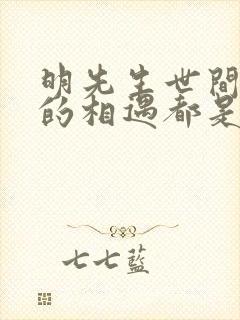 明先生世間
的相遇都是
七七藍